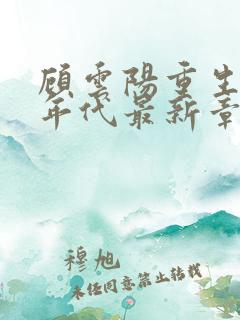 顾雲陽重生
年代最新章
穆旭
未经同意禁止转载